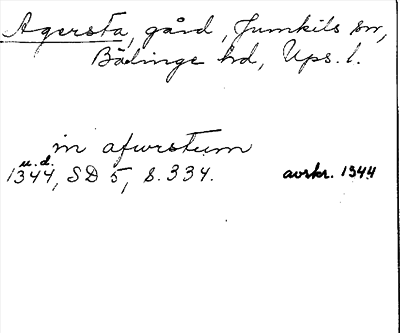 Agersta, gård, Jumkils sn,
Bälinge hd, Ups. l.
in afurstum
u.d.
1344, SD 5, s. 334. avskr. 1344